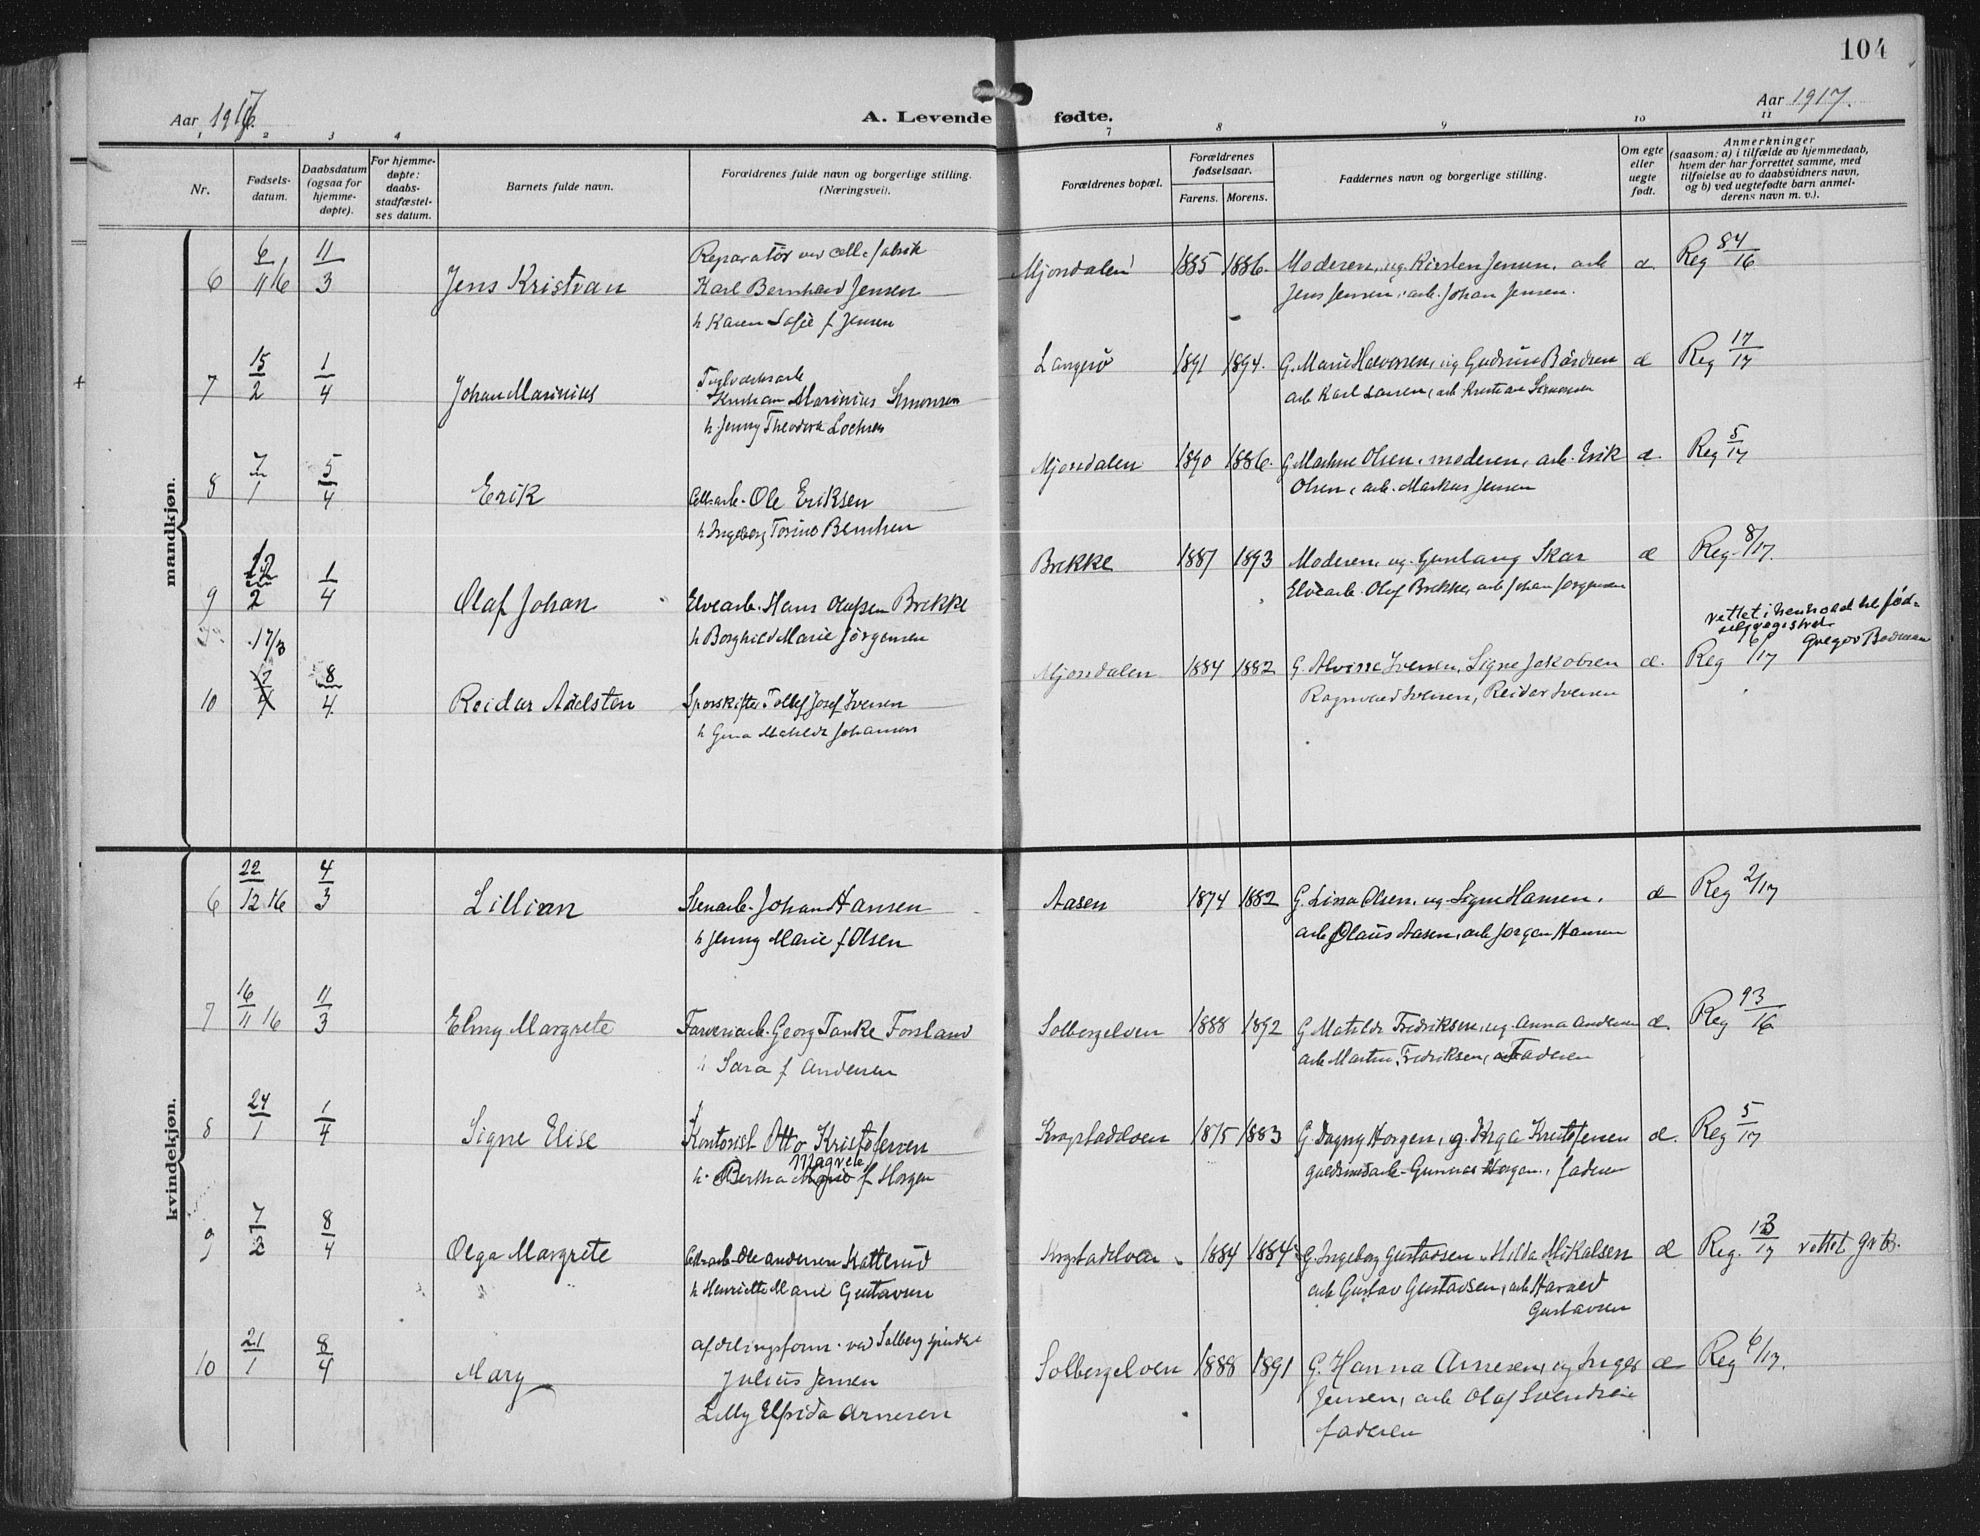 104
Aar 1917.
A. Levende fødte.
Aar 1917.
1 2 3 4 7 8 9 10 11
Nr.
Fødsels-
datum.
Daabsdatum
(ogsaa for
hjemme-
døpte).
For hjemme-
døpte:
daabs-
stadfæstel-
ses datum.
Barnets fulde navn.
Forældrenes fulde navn og borgerlige stilling.
(Næringsvei).
Forældrenes bopæl.
Forældrenes
fødselsaar.
Farens. Morens.
Faddernes navn og borgerlige stilling.
Om egte
eller
uegte
født.
Anmerkninger
(saasom: a) i tilfælde av hjemmedaab,
hvem der har forrettet samme, med
tilføielse av to daabsvidners navn,
og b) ved uegtefødte barn anmel-
derens navn m. v.).
mandkjøn.
6 6/11 16 11/3 Jens Kristian
Reparatør ved cell. fabrik
Karl Bernhard Jensen
h Karen Sofie f Jensen
Mjøndalen 1885 1886.
Moderen, ug Kirsten Jensen, arb
Jens Jensen, arb. Johan Jensen.
Reg 84/16
7 15/2 1/4 Johan Marinius
Kristian Marinius Simonsen
h. Jenny Theodora
Langerø 1891 1894.
G. Marie Halvorsen, ug Gudrun
arb Karl Larsen, arb Kristian Simonsen
Reg 17/17
8 7/1 5/4 Erik
Cellarb. Ole Eriksen
h Ingeborg
Mjøndalen 1890 1886.
G Olsen, moderen, arb. Erik
Olsen, arb. Markus Jensen
Reg 5/17
9 12/2 1/4 Olaf Johan
Elvearb. Hans Olufsen Brekke
h Borghild Marie Jørgensen
Brekke 1887 1893
Moderen, ug. Gunlaug Skar
Elvearb. Olof Brekke, arb Johan Jørgensen
Reg. 8/17.
17/3
10 8/4 Reidar Adelsten
Sporskifter Tollef Josef Iversen
h Gina Mathilde Johansen
Mjøndalen 1884 1882
G. Iversen, Signe Jakobsen
Ragnvald Iversen, Reidar Iversen
rettet i henhold til fød-
selsregistret
Reg 6/17
kvindekjøn.
6 22/12 16 4/3 Lillian
Stenarb. Johan Hansen
h Jenny Marie f Olsen
Aasen 1874 1882
G. Lina Olsen, ug Signe Hansen.
arb Olaus Aasen, arb Jørgen Hansen
Reg 2/17
7 16/11 16 11/3 Elmy Margrete
Farveriarb. Georg Tanke Forsland
h Sara f Andersen
Solbergelven 1888 1892
G Matilde Fredriksen, ug. Anna Andersen
arb Martin Fredriksen, Faderen
Reg 93/16
8 24/1 1/4 Signe Elise
Kontorist Otto Kristofersen
Magrete
h. Bertha Marie f Horgen
Krogstadelven 1875 1883
G. Dagny Horgen, g. Kristofersen
guldsmedarb. Gunnar Horgen, faderen
Reg 5/17
9 7/2 8/4 Olga Margrete
Cellarb Ole Andersen Katterud
h Henriette Marie Gustavsen
Krogstadelven 1884 1884
G. Ingeborg Gustavsen, Milda Mikalsen
arb Gustav Gustavsen, arb Harald
Gustavsen
Reg. 13/17 rettet Gr B.
10 21/1 8/4 Mary
afdelingsform. ved Solberg spinderi
Julius Jensen
Lilly Elfrida Arnesen
Solbergelven 1888 1891
G. Hanna Arnesen, ug Inger
Jensen, arb Olaf Svendsen
faderen
Reg 6/17.